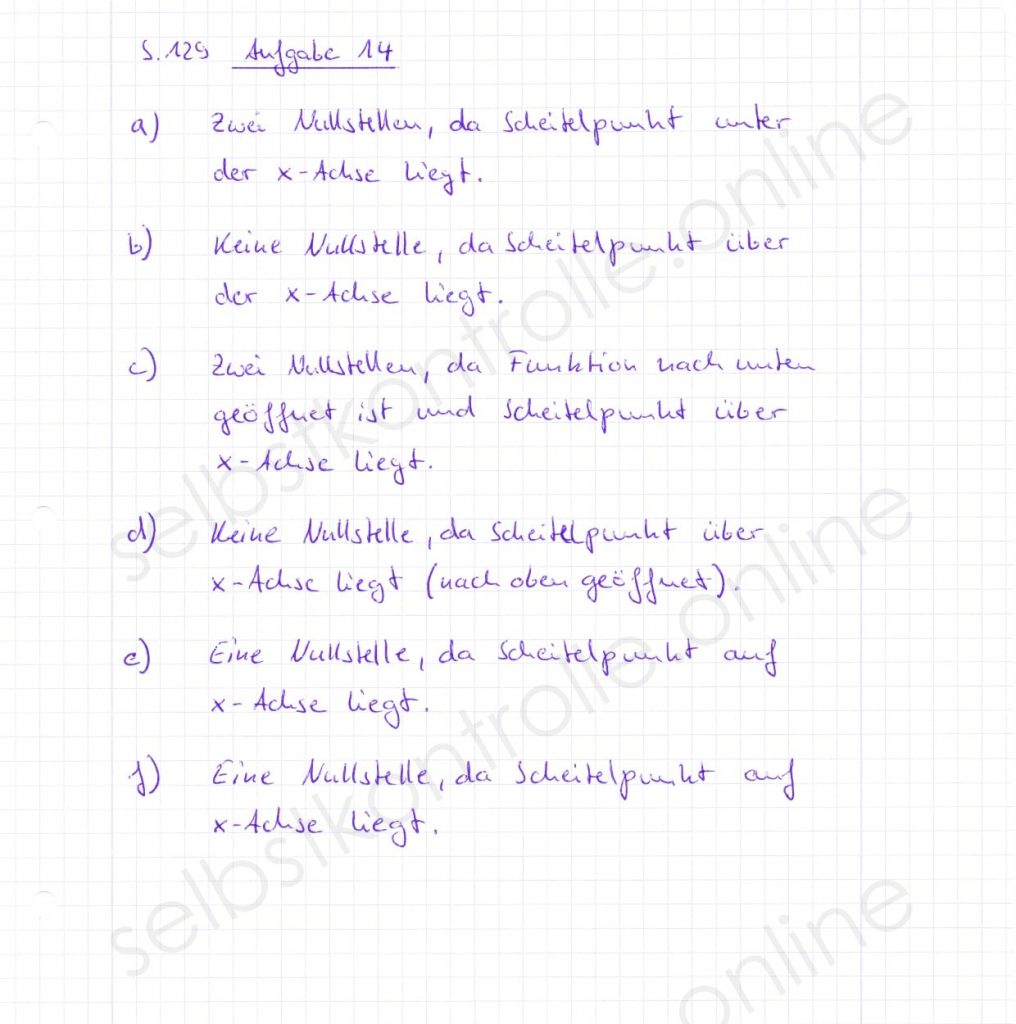 S. 129 Aufgabe 14
a) Zwei Nullstellen, da Scheitelpunkt unter
der x-Achse liegt.
b) Keine Nullstelle, da Scheitelpunkt über
der x-Achse liegt.
c) Zwei Nullstellen, da Funktion nach unten
geöffnet ist und Scheitelpunkt über
x-Achse liegt.
d) Keine Nullstelle, da Scheitelpunkt über
x-Achse liegt (nach oben geöffnet).
e) Eine Nullstelle, da Scheitelpunkt auf
x-Achse liegt.
f) Eine Nullstelle, da Scheitelpunkt auf
x-Achse liegt.
selbstkontrolle.online
selbstkontrolle.online
selbstkontrolle.online